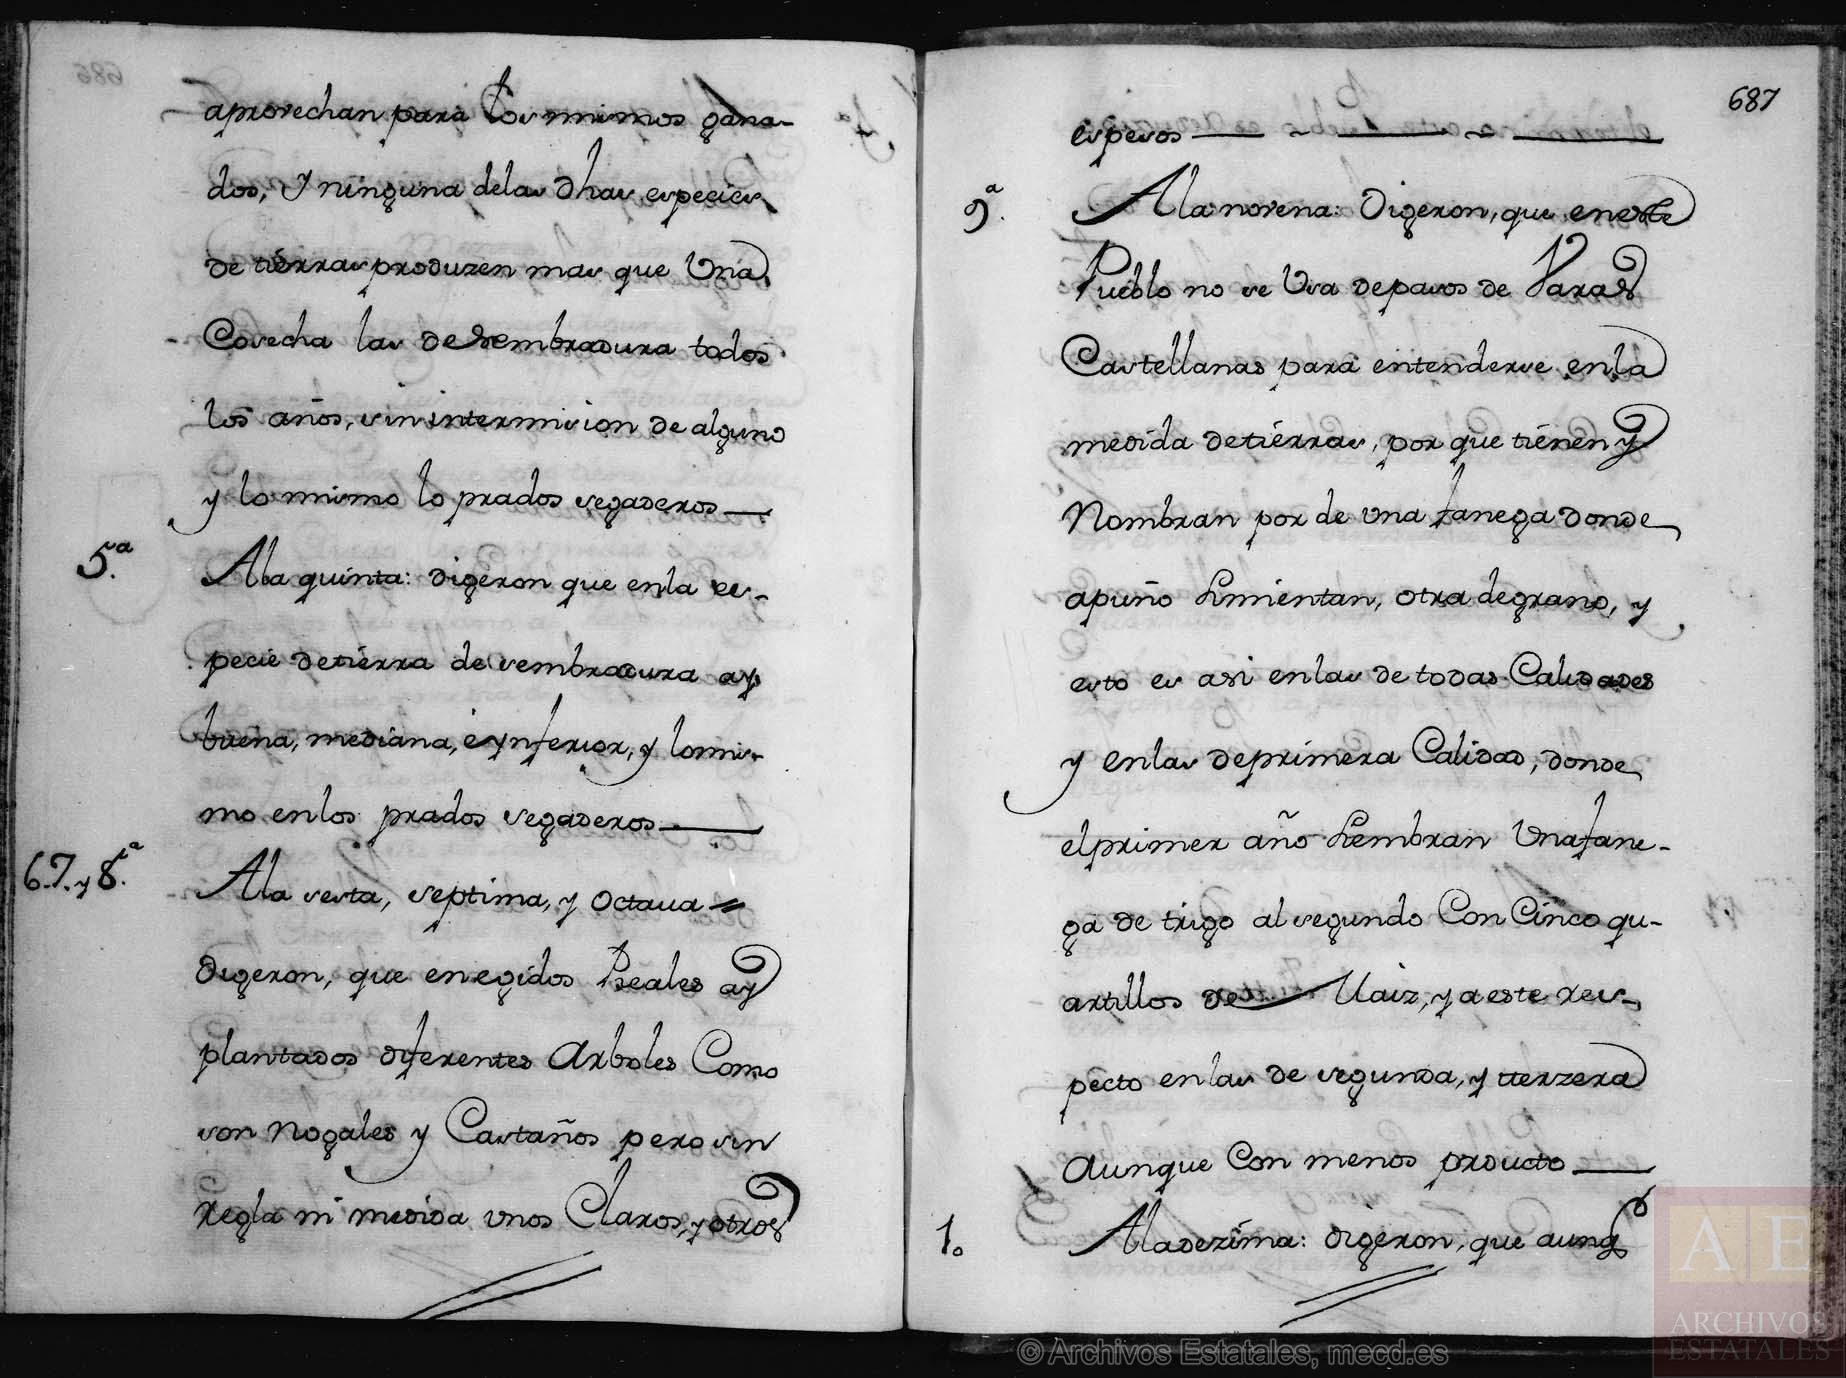 aprovechan para los mismos gana-
dos, y ninguna delas dhas especies
de tiérras produzen mas que Una
Cosecha las de sembradura todos
los años, sin intermision de alguno
y lo mismo lo prados segaderos
5.ª
Ala quinta: digeron que enla es-
pecie detiérra de sembradura ay
buena, mediana, é ynferior, y lo mis-
mo enlos prados segaderos
6.7. y 8.ª
Ala sesta, septima, y octaua
digeron, que en egidos Reales ay
plantados diferentes Arboles Como
son Nogales y Castaños pero sin
regla ni medida unos Claros, y otros
687
espesos
9.ª
Ala novena: Digeron, que eneste
Pueblo no se Usa depasos de Varas
Castellanas para entenderse enla
medida detiérras, por que tiénen y
Nombran por de una fanega donde
apuño simientan, otra degrano, y
esto es asi enlas de todas Calidades
y enlas deprimera Calidad, donde
elprimer año siembran Unafane-
ga de trigo al segundo Con Cinco qu-
artillos de Maiz, y a este res-
pecto enlas de segunda, y terzera
aunque Con menos producto
1o
Aladezima: digeron, que aunq
AE
ARCHIVOS
ESTATALES
© Archivos Estatales, mecd.es